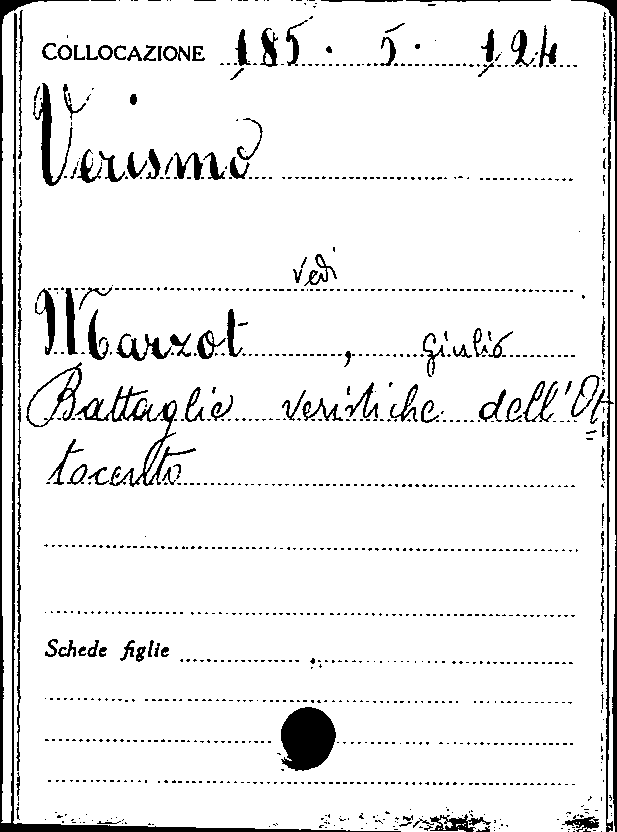 COLLOCAZIONE 185. 5. 124
Verismo
vedi
Marzot, Giulio
Battaglie veristiche dell'Ot=
tocento
Schede figlie